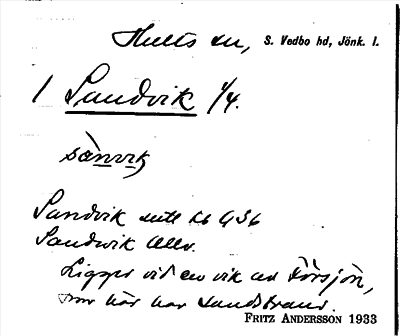 Hults sn, S. Vedbo hd, Jönk. l.
1 Sandvik 1/4.
sànvik
Sandvik
Sandwik Allv.
Ligger vid en vik av Försjön,
som här har sandstrand.
FRITZ ANDERSSON 1933